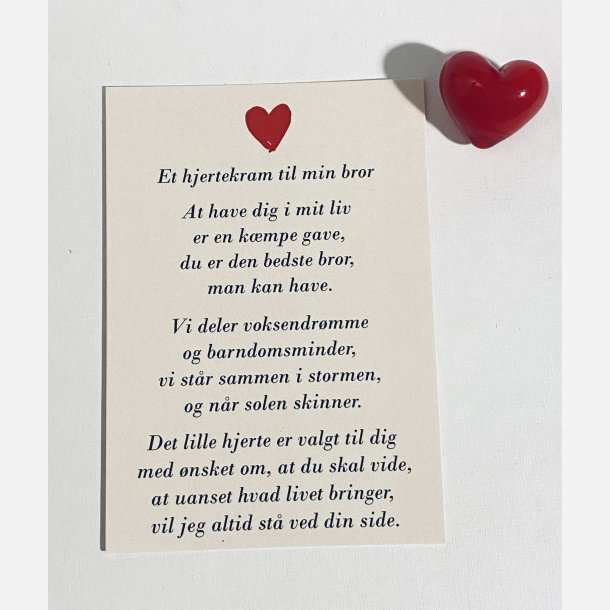 Et hjertekram til min bror
At have dig i mit liv
er en kæmpe gave,
du er den bedste bror,
man kan have.
Vi deler voksendrømme
og barndomsminder,
vi står sammen i stormen,
og når solen skinner.
Det lille hjerte er valgt til dig
med ønsket om, at du skal vide,
at uanset hvad livet bringer,
vil jeg altid stå ved din side.